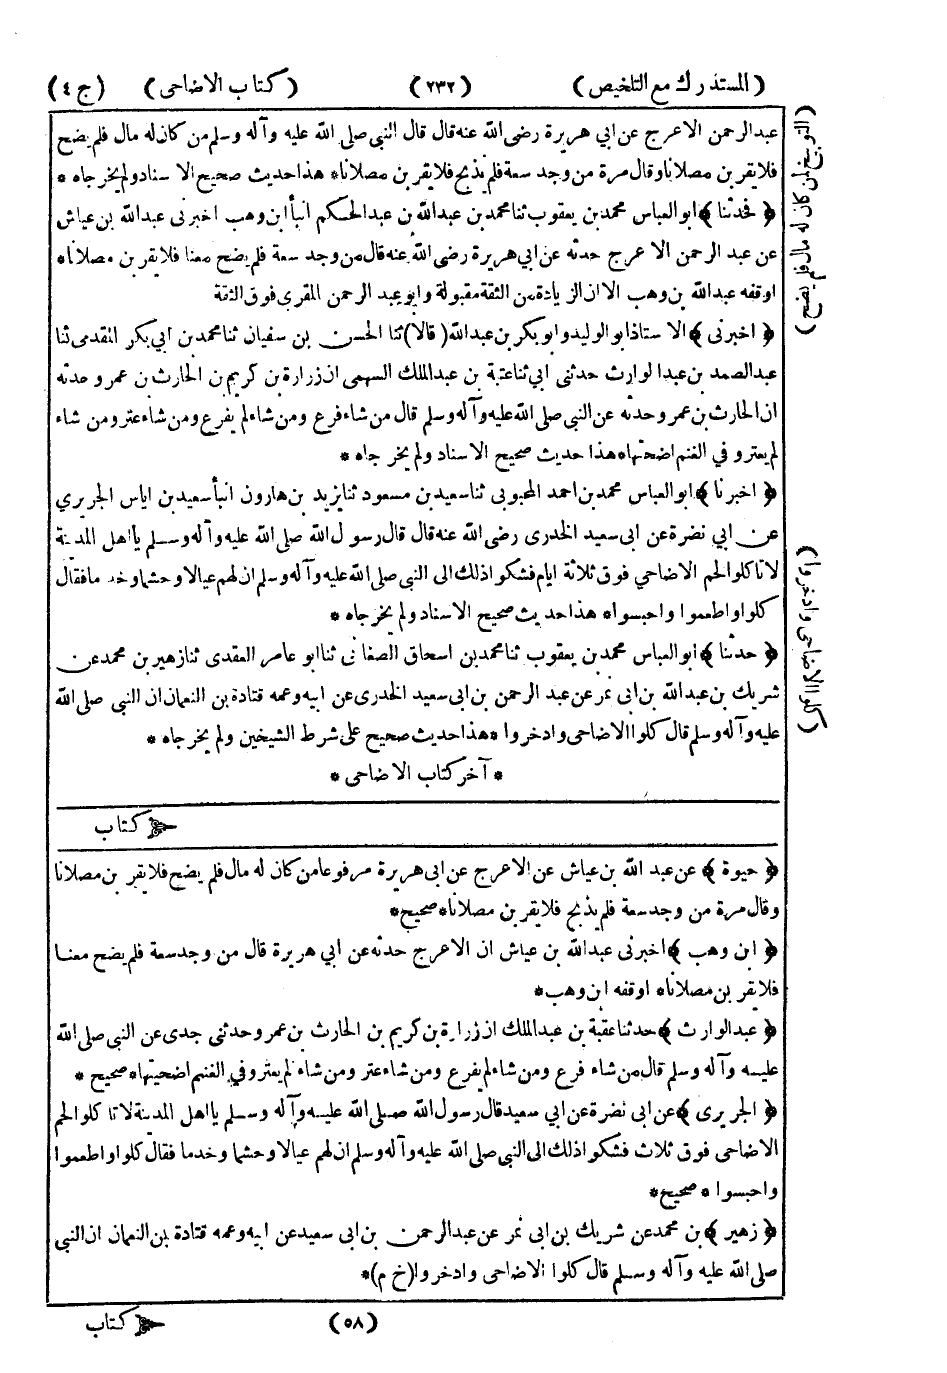 (المستدرك مع التلخيص) (٢٣٢) (كتاب الاضاحى) (ج ٤)
عبدالرحمن الاعرج عن ابي هريرة رضى الله عنه قال قال النبى صلى الله عليه وآله وسلم من كان له مال فلم يضح
فلا يقربن مصلانا وقال مرة من وجد سعة فلم يذبح فلا يقربن مصلانا * هذا حديث صحيح الاسناد ولم يخرجاه *
﴿ فحدثنا ﴾ ابوالعباس محمد بن يعقوب ثنا محمد بن عبدالله بن عبدالحكم انبأ ابن وهب اخبرنى عبدالله بن عياش
عن عبد الرحمن الاعرج حدثه عن ابي هريرة رضى الله عنه قال من وجد سعة فلم يضح معنا فلا يقربن مصلانا *
اوقفه عبدالله بن وهب الا ان الزيادة من الثقة مقبولة وابو عبد الرحمن المقرى فوق الثقة
﴿ اخبرنى ﴾ الاستاذ ابو الوليد وابو بكر بن عبدالله (قالا) ثنا الحسن بن سفيان ثنا محمد بن ابي بكر المقدمى ثنا
عبدالصمد بن عبدالوارث حدثنى ابي ثنا عتبة بن عبدالملك السهمى ان زرارة بن كريم بن الحارث بن عمرو حدثه
ان الحارث بن عمرو حدثه عن النبى صلى الله عليه وآله وسلم قال من شاء فرع ومن شاء لم يفرع ومن شاء عتر ومن شاء
لم يعتر وفي الغنم اضحتها * هذا حديث صحيح الاسناد ولم يخرجاه *
﴿ اخبرنا ﴾ ابوالعباس محمد بن احمد المحبوبى ثنا سعيد بن مسعود ثنا يزيد بن هارون انبأ سعيد بن اياس الجريري
عن ابي نضرة عن ابى سعيد الخدرى رضى الله عنه قال قال رسول الله صلى الله عليه وآله وسلم يا اهل المدينة
لا تاكلوا لحم الاضاحي فوق ثلاثة ايام فشكوا ذلك الى النبى صلى الله عليه وآله وسلم ان لهم عيالا وحشما وخدما فقال
كلوا واطعموا واحبسوا * هذا حديث صحيح الاسناد ولم يخرجاه *
﴿ حدثنا ﴾ ابوالعباس محمد بن يعقوب ثنا محمد بن اسحاق الصغانى ثنا ابو عامر العقدى ثنا زهير بن محمد عن
شريك بن عبدالله بن ابى نمر عن عبد الرحمن بن ابى سعيد الخدرى عن ابيه وعمه قتادة بن النعمان ان النبى صلى الله
عليه وآله وسلم قال كلوا الاضاحى وادخروا * هذا حديث صحيح على شرط الشيخين ولم يخرجاه *
* آخر كتاب الاضاحى *
كتاب
﴿ حيوة ﴾ عن عبد الله بن عياش عن الاعرج عن ابى هريرة مرفوعا من كان له مال فلم يضح فلا يقربن مصلانا
وقال مرة من وجد سعة فلم يذبح فلا يقربن مصلانا * صحيح *
﴿ ابن وهب ﴾ اخبرنى عبدالله بن عياش ان الاعرج حدثه عن ابي هريرة قال من وجد سعة فلم يضح معنا
فلا يقربن مصلانا * اوقفه ابن وهب *
﴿ عبدالوارث ﴾ حدثنا عقبة بن عبدالملك ان زرارة بن كريم بن الحارث بن عمر وحدثنى جدى عن النبى صلى الله
عليه وآله وسلم قال من شاء فرع ومن شاء لم يفرع ومن شاء عتر ومن شاء لم يعتر وفي الغنم اضحيتها * صحيح *
﴿ الجريرى ﴾ عن ابى نضرة عن ابي سعيد قال رسول الله صلى الله عليه وآله وسلم يا اهل المدينة لا تاكلوا لحم
الاضاحى فوق ثلاث فشكوا ذلك الى النبى صلى الله عليه وآله وسلم ان لهم عيالا وحشما وخدما فقال كلوا واطعموا
واحبسوا * صحيح *
﴿ زهير ﴾ بن محمد عن شريك بن ابى نمر عن عبدالرحمن بن ابى سعيد عن ابيه وعمه قتادة بن النعمان ان النبي
صلى الله عليه وآله وسلم قال كلوا الاضاحى وادخروا (خ م) *
(٥٨) كتاب
(التوبيخ لمن كان له مال فلم يضح)
(كلوا الاضاحى وادخروا)